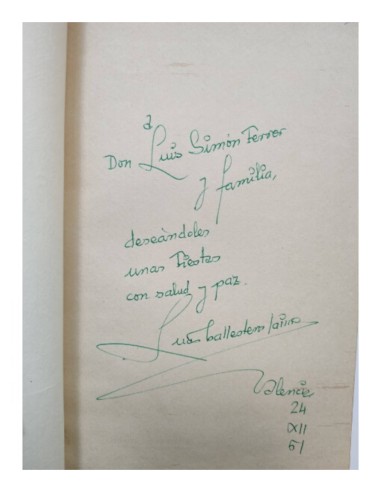 à
Don Luis Simón Ferrer
y familia,
deseándoles
unas Fiestas
con salud y paz.
Luis Ballester
Valencia
24
XII
51